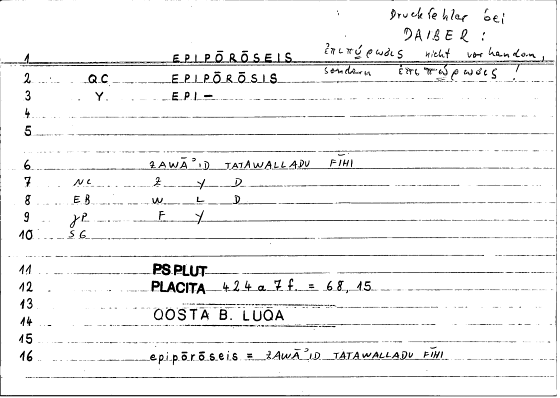 Druckfehler bei
DAIBER:
1 EPIPŌRŌSEIS ἐπιπώρωσις nicht vorhanden,
2 QC EPIPŌRŌSIS sondern ἐπιπώρωσις !
3 Y. EPI–
4
5
6 ZAWĀʾID TATAWALLADU FĪHI
7 NC Z Y D
8 EB W L D
9 JP F Y
10 SG
11 PS PLUT
12 PLACITA 424a7f. = 68,15
13
14 QOSTA B. LUQA
15
16 epipōrōseis = ZAWĀʾID TATAWALLADU FĪHI